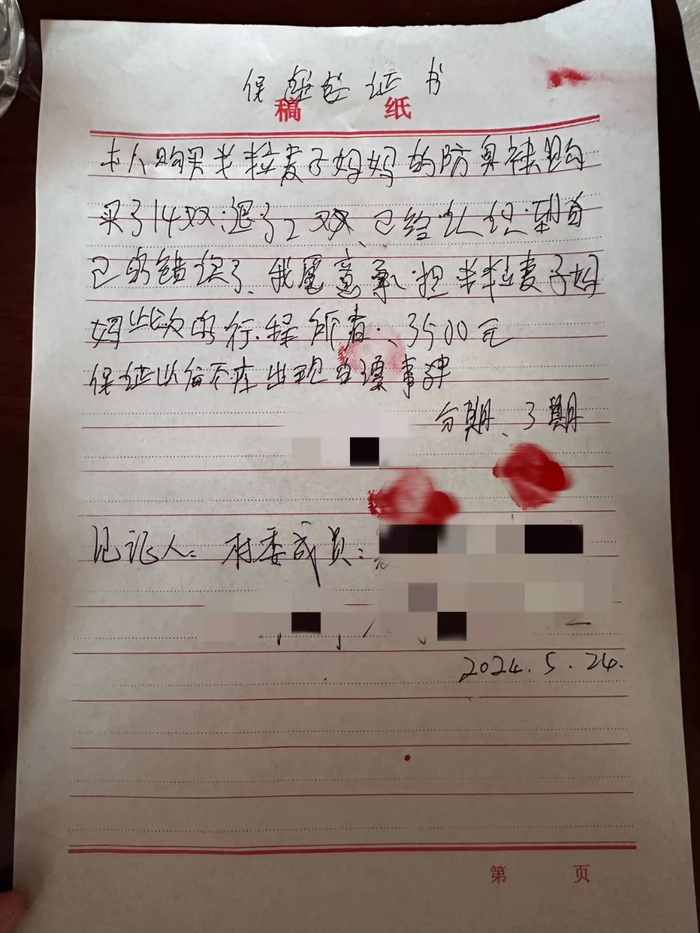 保证书
稿 纸
本人购买半粒麦子妈妈的防臭袜购
买了14双,退了2双、已经认识到自
己的错误了、我愿意承担半粒麦子妈
妈此次的行程所有、3500元
保证以后不在出现 事件
分期、3期
见证人:村委成员:
2024.5.24.
第 页